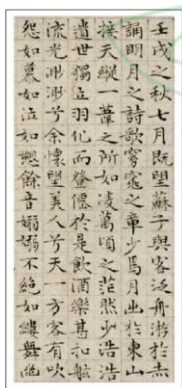 壬戌之秋七月既望蘇子與客泛舟游於赤
誦明月之詩歌窈窕之章少焉月出於東山
接天縱一葦之所如凌萬頃之茫然浩浩
遺世獨立羽化而登僊於是飲酒樂甚扣舷
流光渺渺兮余懷望美人兮天一方客有吹
怨如慕如泣如愬餘音嫋嫋不絕如縷舞幽